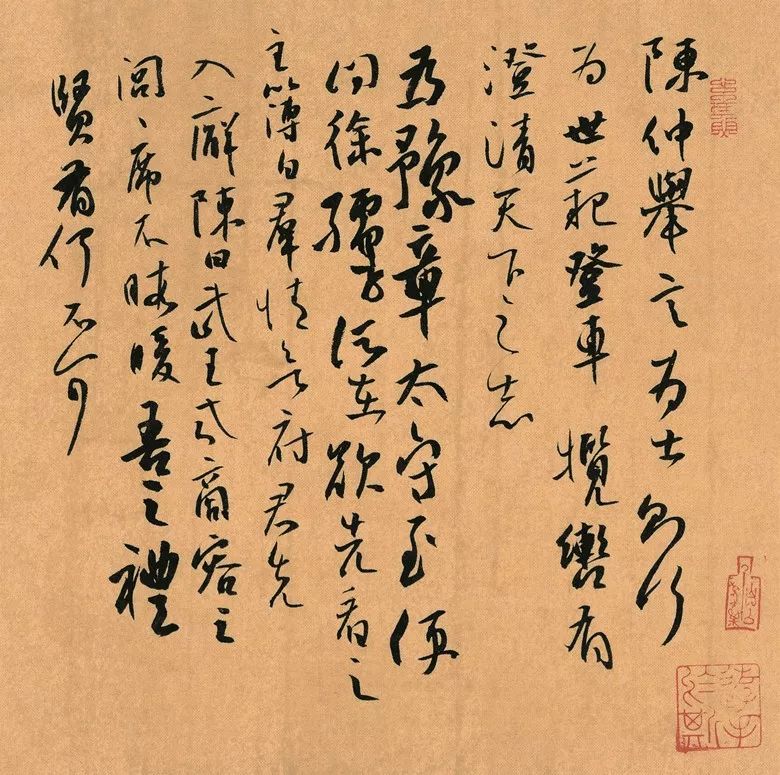 陳仲舉言为士則行
为世範登車攬轡有
澄清天下之志
為豫章太守至便
问徐孺子所在欲先看之
主簿白羣情欲府君先
入廨陳曰武王式商容之
閭席不暇暖吾之禮
賢有何不可